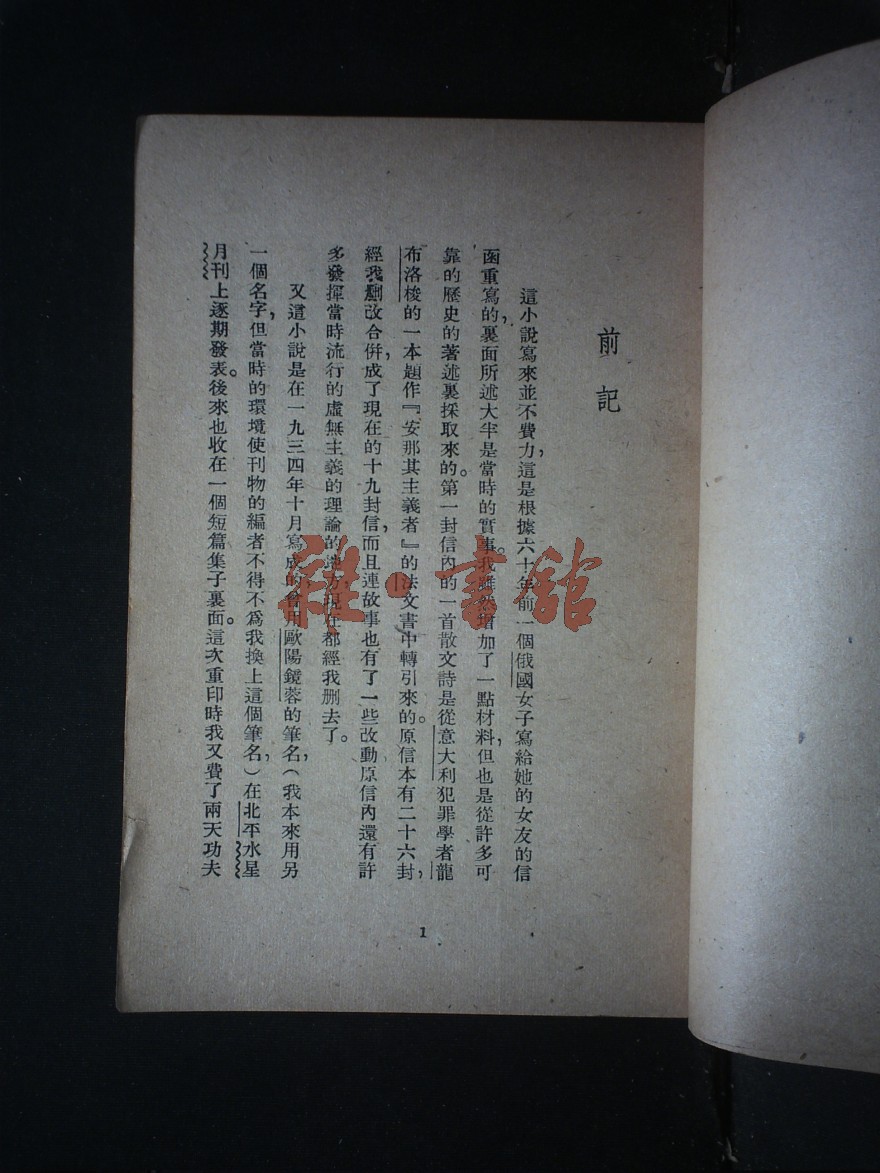 前記
這小說寫來並不費力，這是根據六十年前一個俄國女子寫給她的女友的信
函重寫的，裏面所述大半是當時的實事。我雖然增加了一點材料，但也是從許多可
靠的歷史的著述裏採取來的。第一封信內的一首散文詩是從意大利犯罪學者龍
布洛梭的一本題作『安那其主義者』的法文書中轉引來的。原信本有二十六封，
經我刪改合併，成了現在的十九封信，而且連故事也有了一些改動原信內還有許
多發揮當時流行的虛無主義的理論的地方，現在都經我刪去了。
又這小說是在一九三四年十月寫成的曾用歐陽鏡蓉的筆名，（我本來用另
一個名字，但當時的環境使刊物的編者不得不爲我換上這個筆名，）在北平水星
月刊上逐期發表。後來也收在一個短篇集子裏面。這次重印時我又費了兩天功夫
1
雜·書館